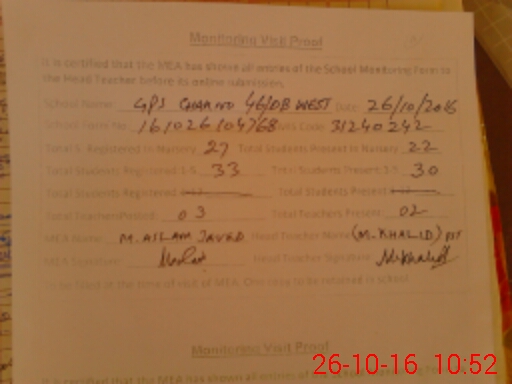 Monitoring Visit Proof
It is certified that the MEA has shown all entries of the School Monitoring Form to
the Head Teacher before its online submission.
School Name: GPS CHAK NO 46/DB WEST Date: 26/10/2016
School Form No. 161026104768 EMIS Code: 31240242
Total S. Registered in Nursery: 27 Total Students Present in Nursery: 22
Total Students Registered: 1-5 33 Total Students Present: 1-5 30
Total Students Registered Total Students Present
Total Teachers Posted: 03 Total Teachers Present: 02
MEA Name: M. ASLAM JAVED Head Teacher Name: (M. KHALID) PST
MEA Signature: Head Teacher Signature: M.Khalid
To be filled at the time of visit of MEA. One copy to be retained in school
Monitoring Visit Proof
It is certified that the MEA has shown all entries of the School Monitoring Form to
26-10-16 10:52